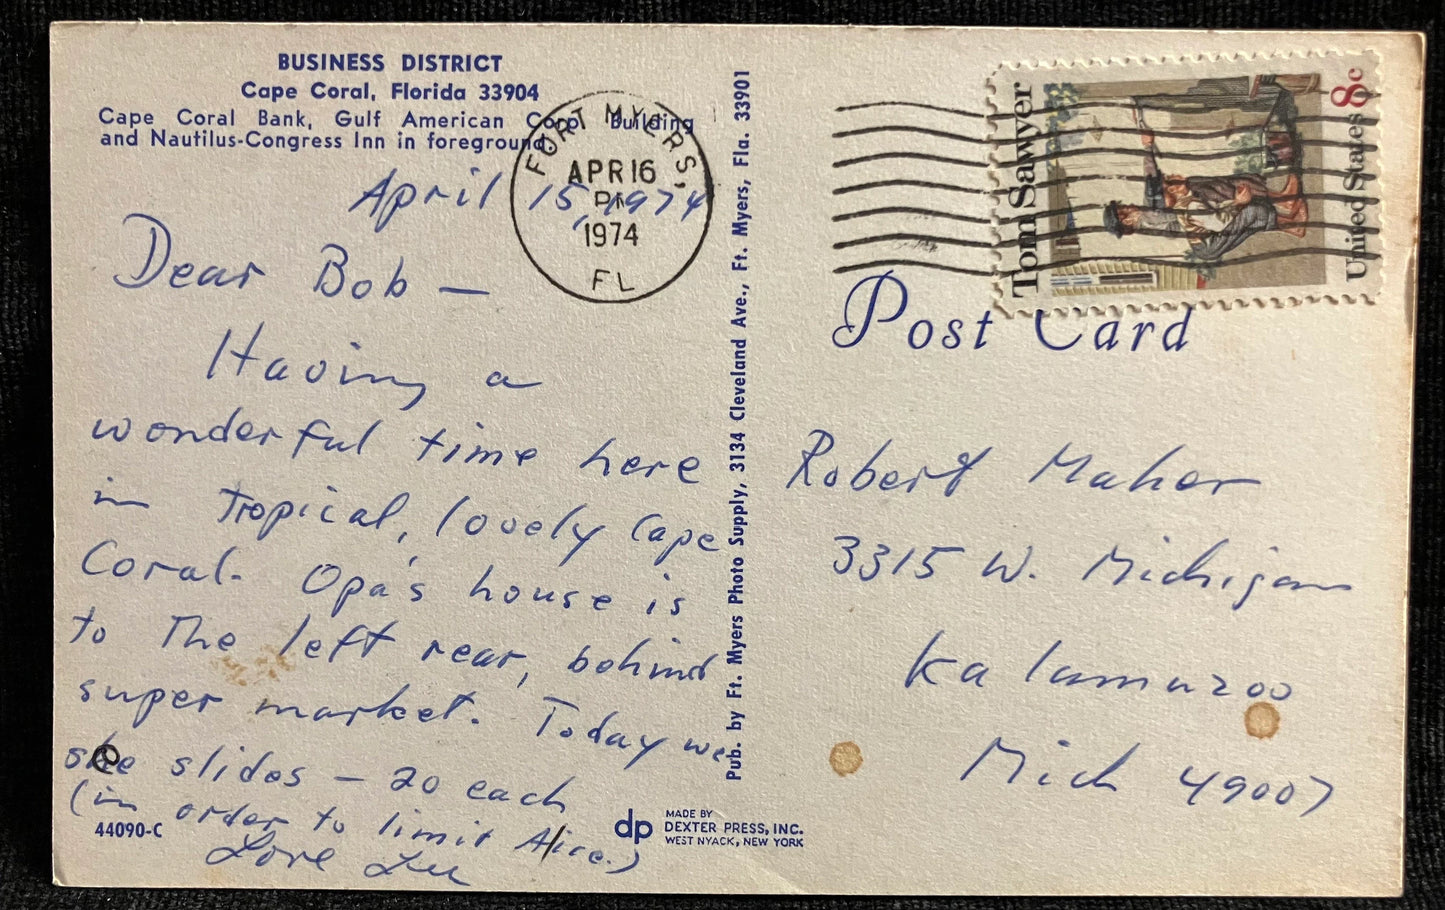 BUSINESS DISTRICT
Cape Coral, Florida 33904
Cape Coral Bank, Gulf American Corp. Building
and Nautilus-Congress Inn in foreground.
FORT MYERS,
APR 16
PM
1974
FL
April 15, 1974
Dear Bob —
Having a
wonderful time here
in tropical, lovely Cape
Coral. Opa's house is
to the left rear, behind
super market. Today we
see slides — 20 each
(in order to limit Alice.)
Love Lu
44090-C
Pub. by Ft. Myers Photo Supply, 3134 Cleveland Ave., Ft. Myers, Fla. 33901
dp
MADE BY
DEXTER PRESS, INC.
WEST NYACK, NEW YORK
Tom Sawyer
United States 8c
Post Card
Robert Maher
3315 W. Michigan
Kalamazoo
Mich 49007